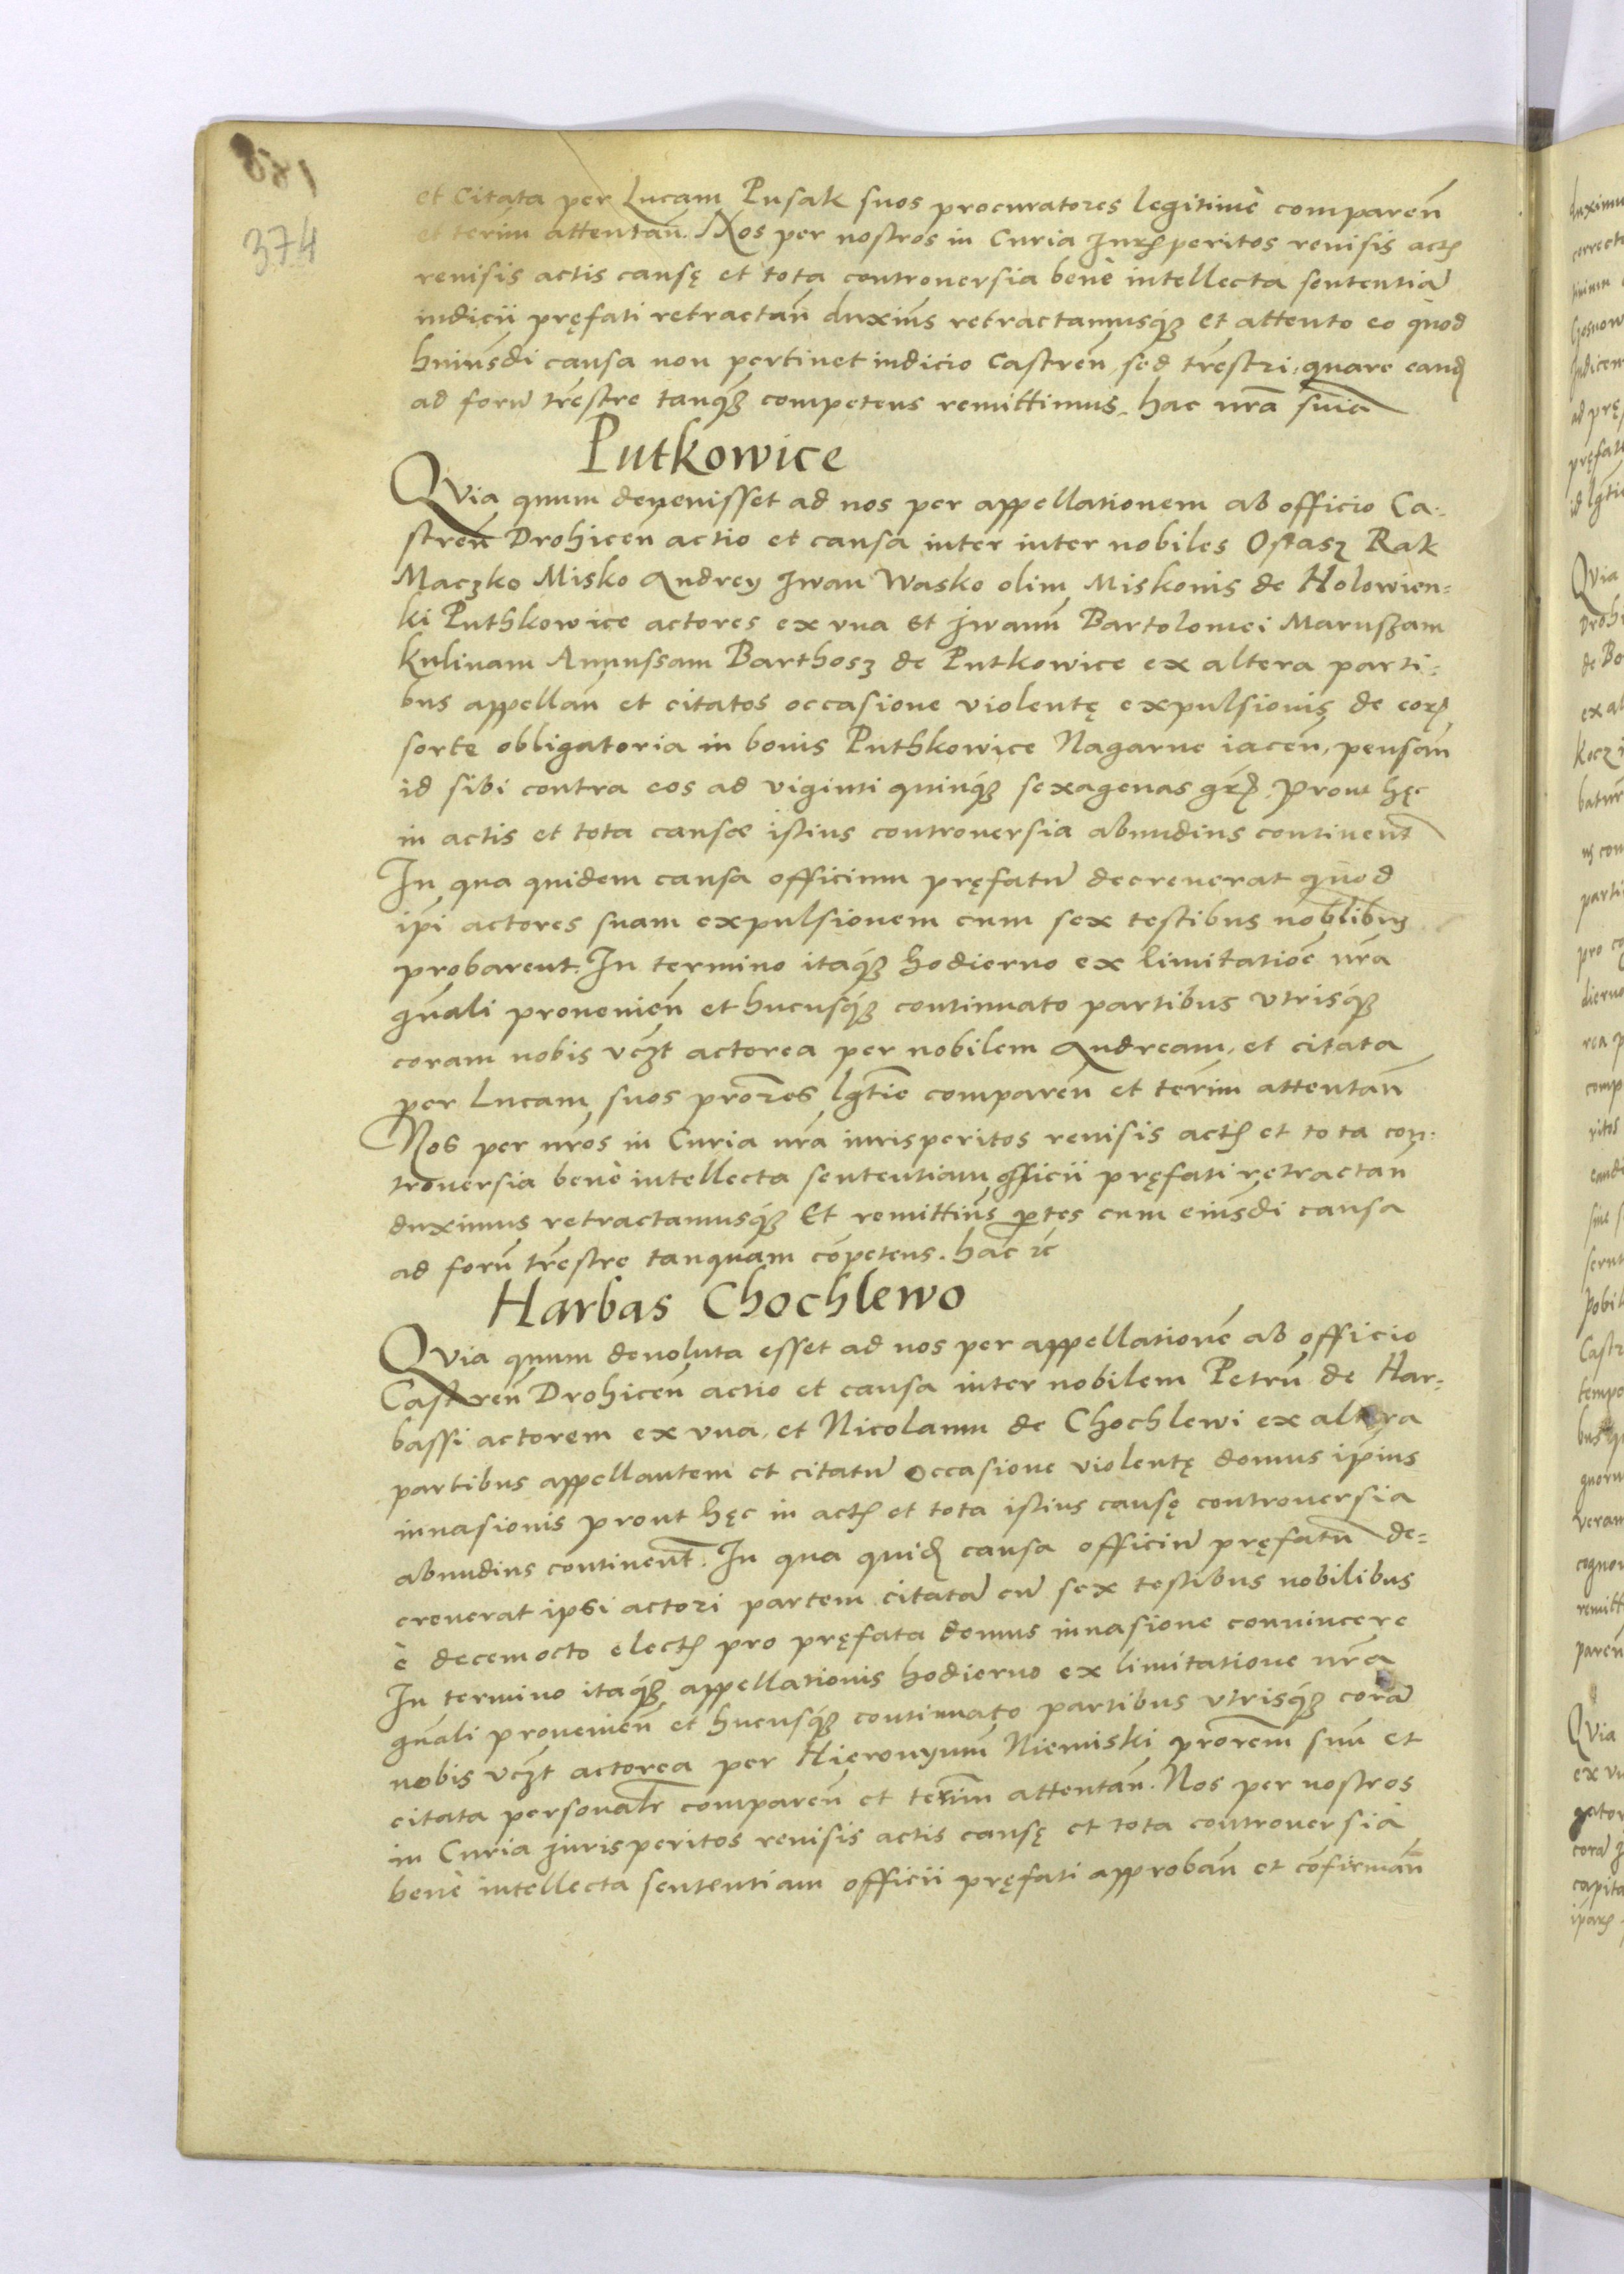 374
et citata per Lucam Pusak suos procuratores legitimè compareñ
et terim attentañ. Nos per nostros in Curia Iurꝭperitos reuisis actꝭ
reuisis actis causę et tota controuersia benè intellecta sententiã
iudicii pręfati retractañ duxim̃s retractamusqꝫ et attento eo quod
huiusm̃di causa non pertinet iudicio Castreñ sed tr̃estri, quare eand
ad forũ tr̃estre tanqꝫ competens remittimus. hac nr̃a suĩa
Putkowice
Quia quum deuenisset ad nos per appellationem ab officio Ca-
streñ Drohiceñ actio et causa inter inter nobiles Ostasz Rak
Maczko Misko Andrey Iwan Wasko olim Miskonis de Holowien-
ki Puthkowice actores ex vna Et Iwanũ Bartolomei Maruszam
Kulinam Annussam Barthosz de Putkowice ex altera parti-
bus appellañ et citatos occasione violentę expulsionis de eorꝭ
sorte obligatoria in bonis Puthkowice Nagarne iaceñ, pensañ
id sibi contra eos ad viginti quinqꝫ sexagenas gr̃ꝭ. Prout hęc
in actis et tota causæ istius controuersia abundius continent̃
In qua quidem causa officium pręfatũ decreuerat quod
ip̃i actores suam expulsionem cum sex testibus noblibus
probarent. In termino itaqꝫ hodierno ex limitatioẽ nr̃a
gñali proueniẽn et hucusqꝫ continuato partibus vtrisqꝫ
coram nobis vcꝫt actorea per nobilem Andream, et citata
per Lucam suos prõres lgt̃ie compareñ et terim attentañ
Nos per nr̃os in Curia nr̃a iurisperitos reuisis actꝭ et tota con-
trouersia benè intellecta sententiam officii pręfati retractañ
duximus retractamusqꝫ Et remittim̃s ꝑtes cum eiusm̃di causa
ad forũ tr̃estre tanquam cõpetens. hac ꝛc
Harbas Chochlewo
Quia quum deuoluta esset ad nos per appellationẽ ab officio
Castreñ Drohiceñ actio et causa inter nobilem Petrũ de Har-
bassi actorem ex vna, et Nicolaum de Chochlewi ex altera
partibus appellantem et citatũ occasione violentę domus ip̃ius
inuasionis prout hęc in actꝭ et tota istius causę controuersia
abundius continent̃. In qua quid causa officiũ pręfatũ de-
creuerat ipsi actori partem citatã cũ sex testibus nobilibus
è decemocto electꝭ pro pręfata domus inuasione conuincere
In termino itaqꝫ appellationis hodierno ex limitatione nr̃a
gñali proueniẽn et hucusqꝫ continuato partibus vtrisqꝫ corã
nobis vcꝫt actorea per Hieronymũ Niemiski prõrem suũ et
citata personalr̃ compareñ et terim attentañ. Nos per nostros
in Curia iurisperitos reuisis actis causę et tota controuersia
benè intellecta sententiam officii pręfati approbañ et cõfirmañ